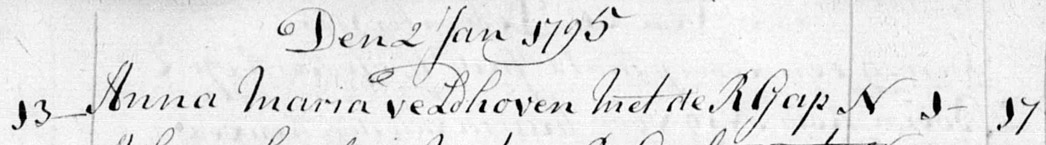 Den 2 Jan 1795
13 Anna Maria veldhoven met de R Gap N 1 - 17